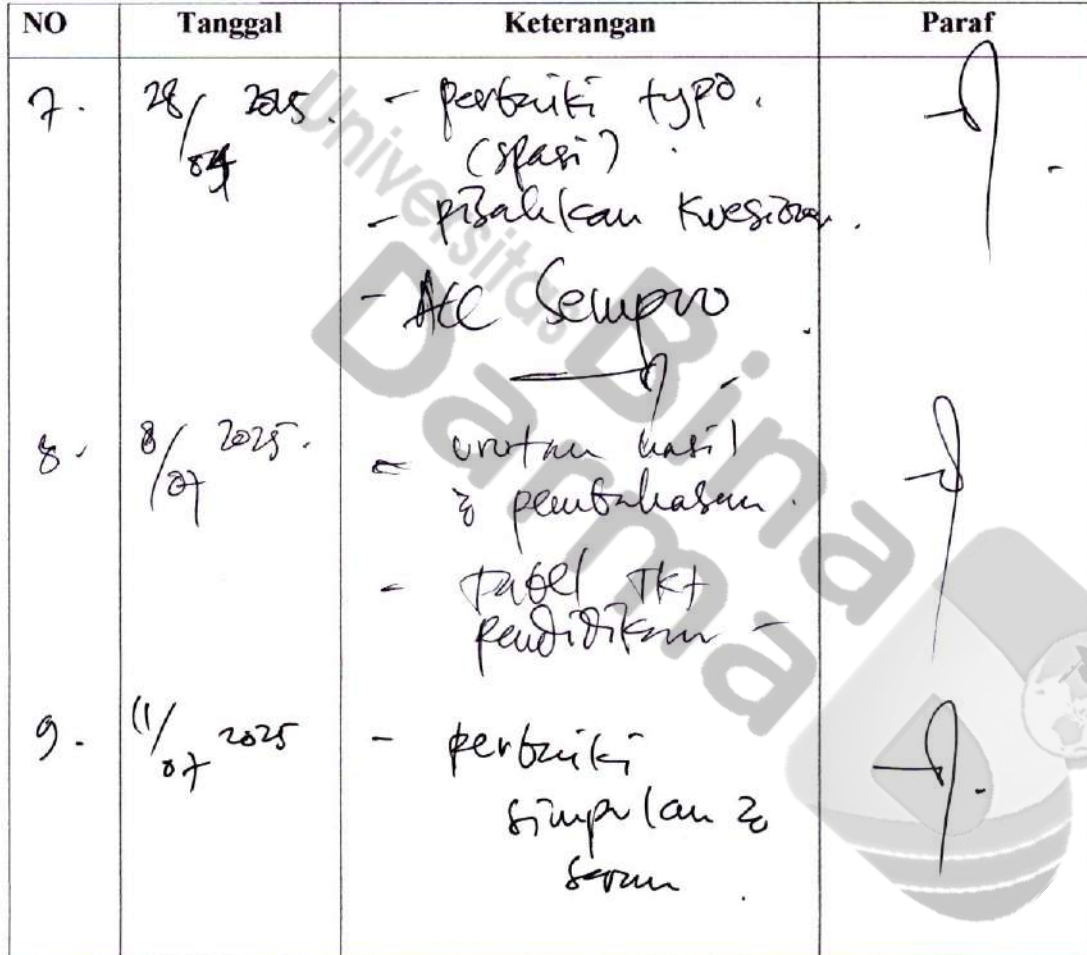 NO Tanggal Keterangan Paraf
7. 28/04 2025. - perbaiki typo.
(spasi).
- pisahkan Kuesioner.
- Acc Sempro.
8. 8/07 2025. - urutan hasil
& pembahasan.
- tabel Tkt
pendidikan -
9. 11/07 2025 - perbaiki
simpulan &
saran.
Universitas
Bina
Darma